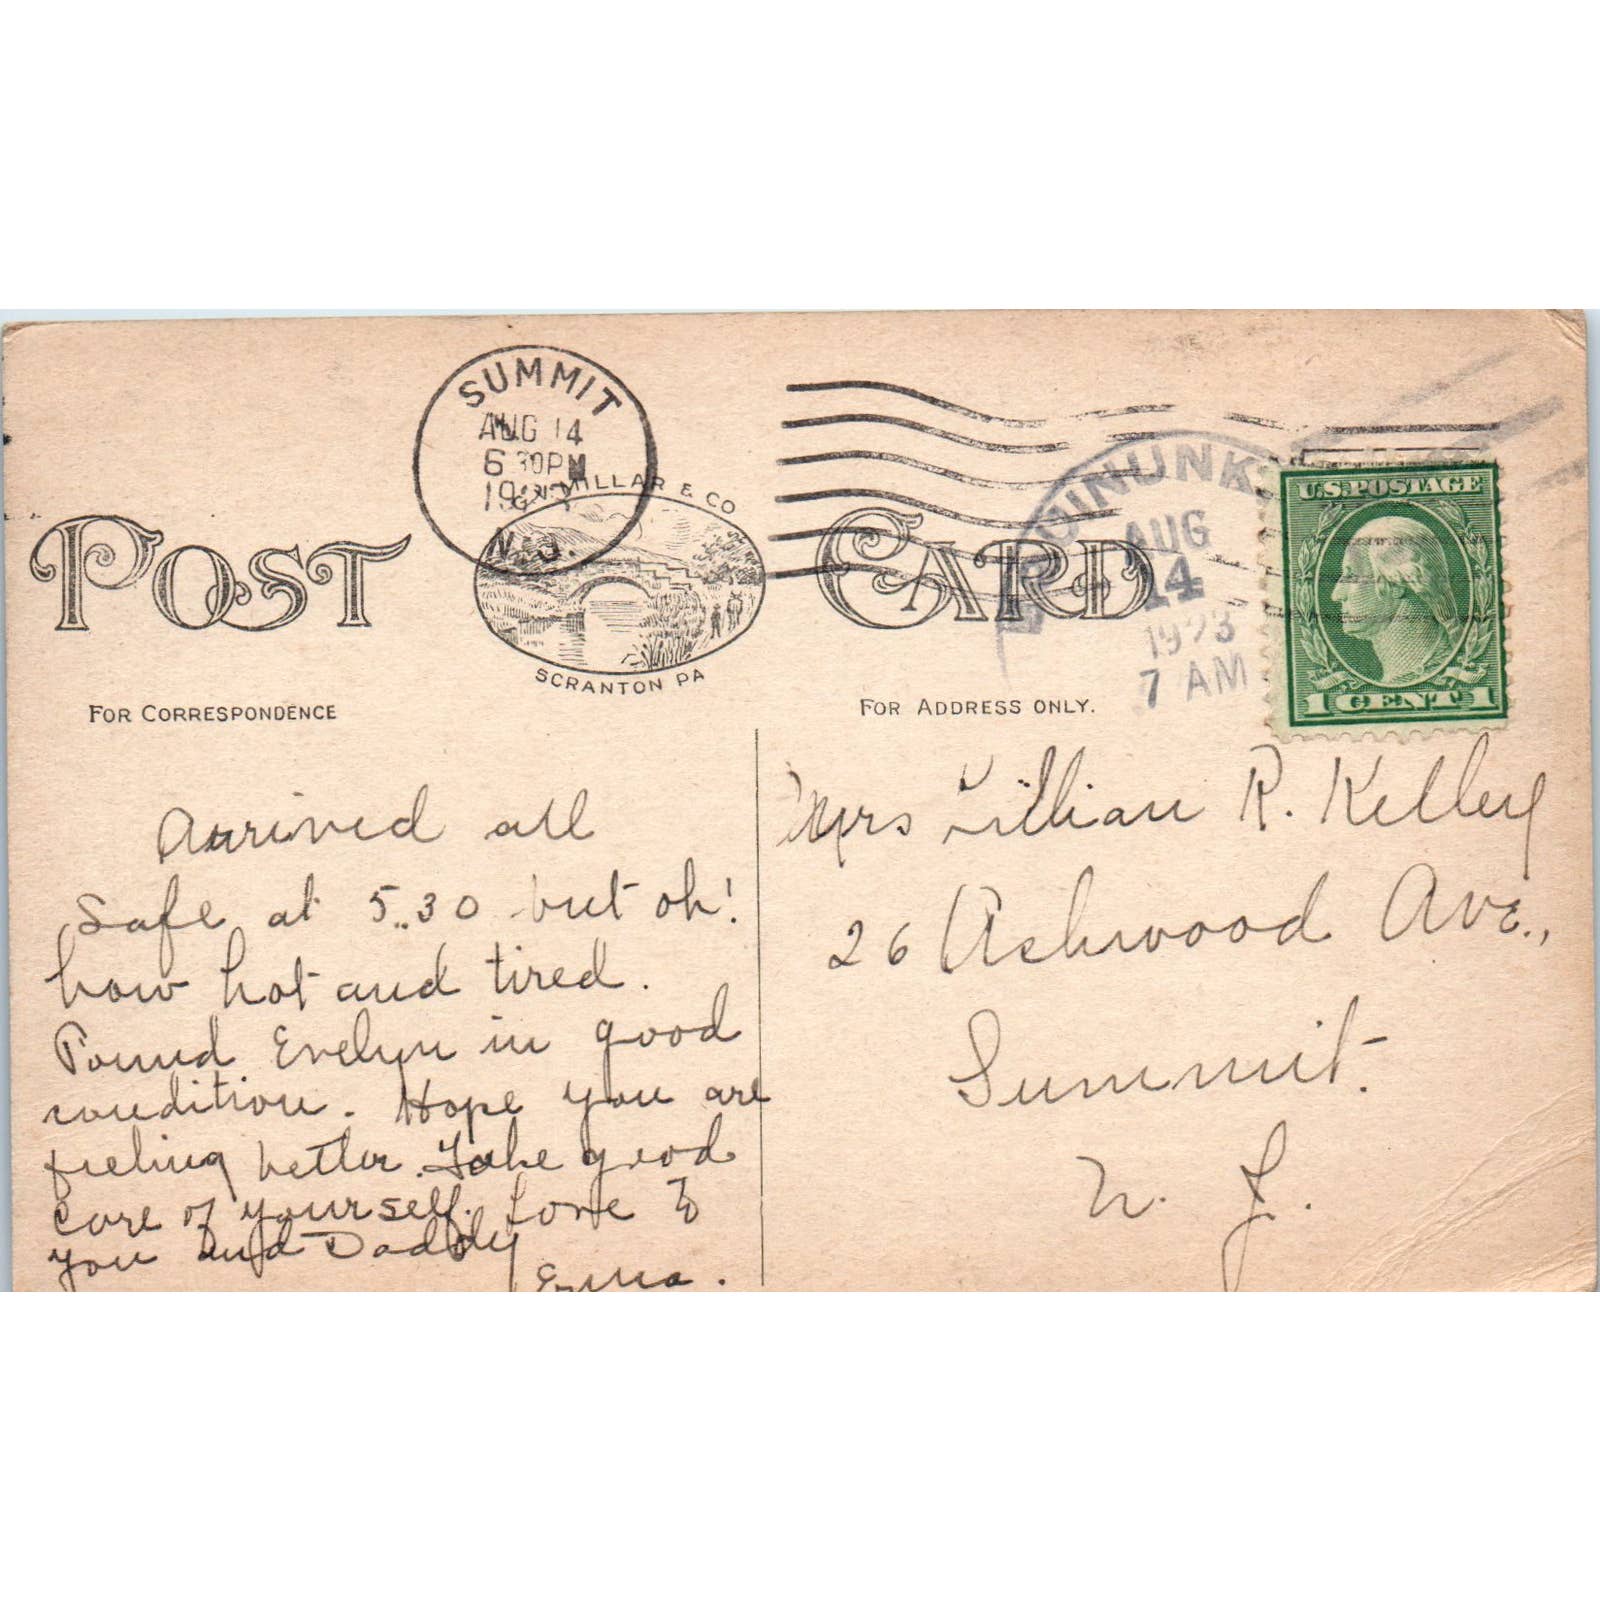 SUMMIT
AUG 14
6 30PM
1923
N.J.
MILLAR & CO
SCRANTON PA
POST CARD
UINUNK
AUG
14
1923
7 AM
U.S. POSTAGE
1 CENT 1
FOR CORRESPONDENCE
FOR ADDRESS ONLY.
Arrived all
safe at 5.30 but oh!
how hot and tired.
Found Evelyn in good
condition. Hope you are
feeling better. Take good
care of yourself. Love to
you and Daddy
Erma.
Mrs Lillian R. Kelley
26 Ashwood Ave.,
Summit.
N. J.